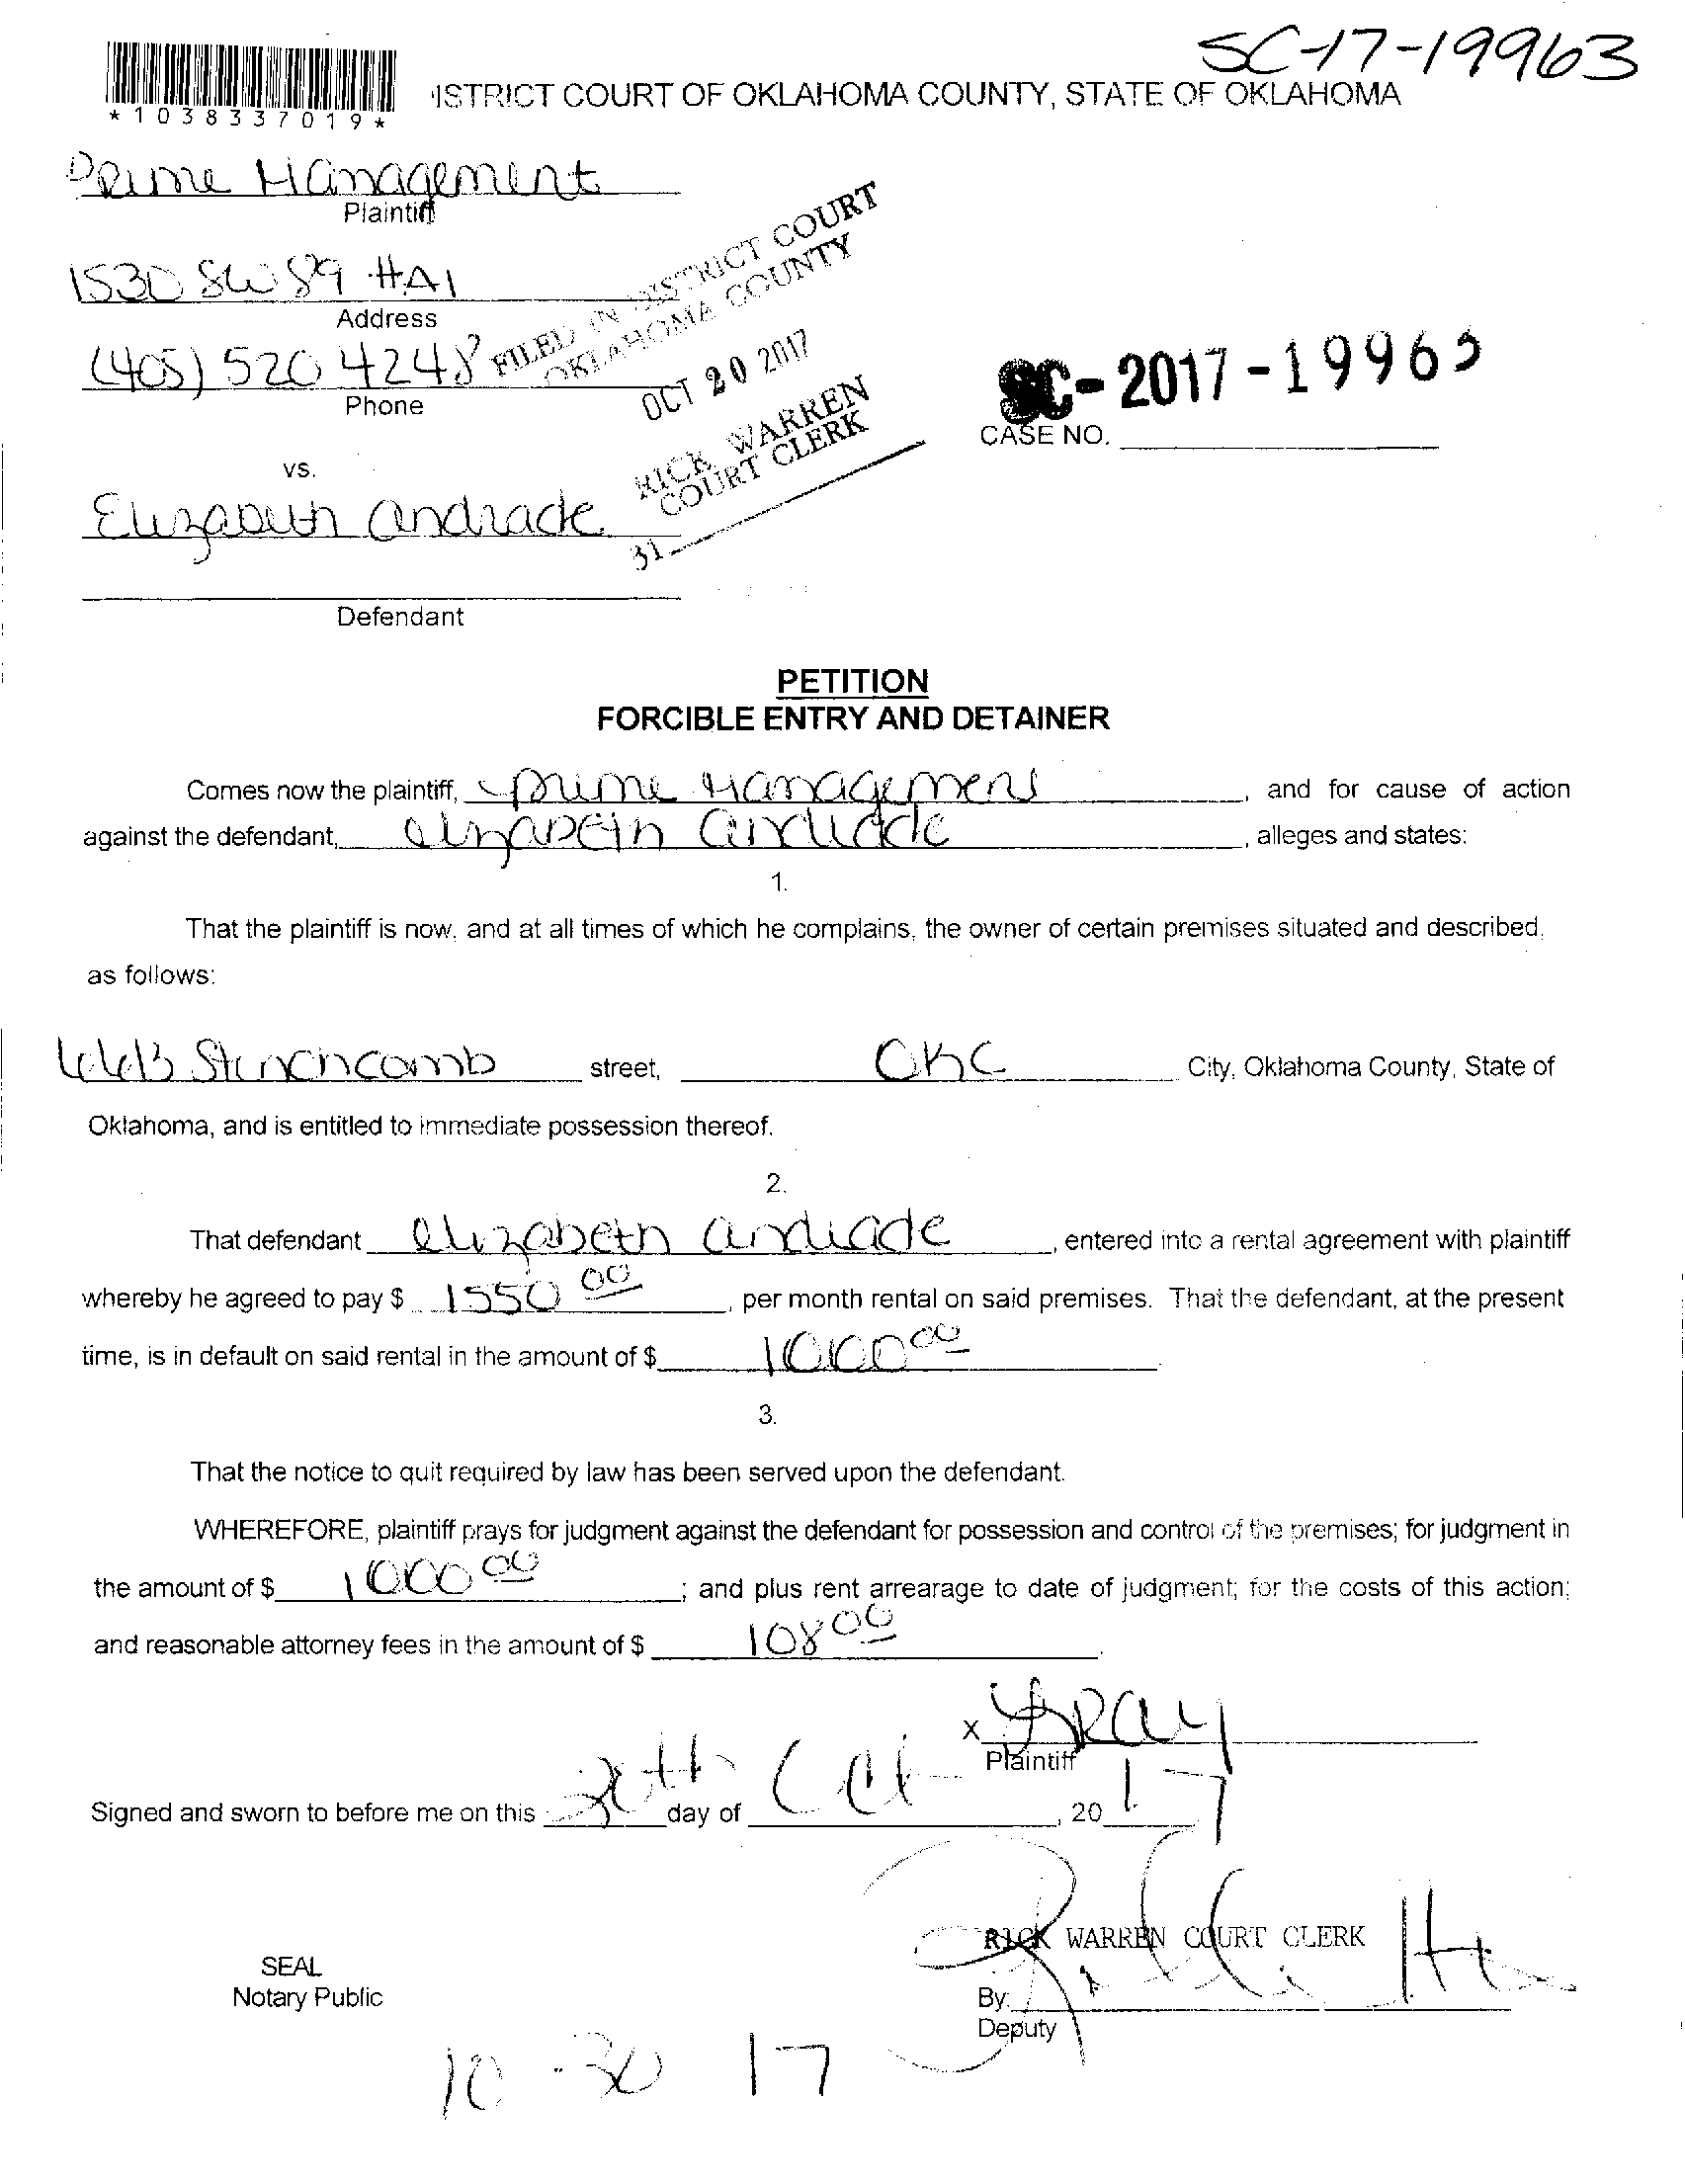 SC-17-19963
*1038337019*
ISTRICT COURT OF OKLAHOMA COUNTY, STATE OF OKLAHOMA
Prime Management
Plaintiff
1530 SW 89 #A1
Address
(405) 520 4248
Phone
FILED IN DISTRICT COURT
OKLAHOMA COUNTY
OCT 20 2017
RICK WARREN
COURT CLERK
31
SC-2017-19963
CASE NO.
vs.
Elizabeth Andrade
Defendant
PETITION
FORCIBLE ENTRY AND DETAINER
Comes now the plaintiff, Prime Management, and for cause of action
against the defendant, elizabeth andrade, alleges and states:
1.
That the plaintiff is now, and at all times of which he complains, the owner of certain premises situated and described,
as follows:
Stinchcomb street, OKC City, Oklahoma County, State of
Oklahoma, and is entitled to immediate possession thereof.
2.
That defendant elizabeth andrade, entered into a rental agreement with plaintiff
whereby he agreed to pay $ 1550 00, per month rental on said premises. That the defendant, at the present
time, is in default on said rental in the amount of $ 1000 00.
3.
That the notice to quit required by law has been served upon the defendant.
WHEREFORE, plaintiff prays for judgment against the defendant for possession and control of the premises; for judgment in
the amount of $ 1000 00; and plus rent arrearage to date of judgment; for the costs of this action;
and reasonable attorney fees in the amount of $ 108 00.
X
Plaintiff
Signed and sworn to before me on this day of Oct, 20 17
RICK WARREN COURT CLERK
SEAL
Notary Public
By:
Deputy
10-30 17